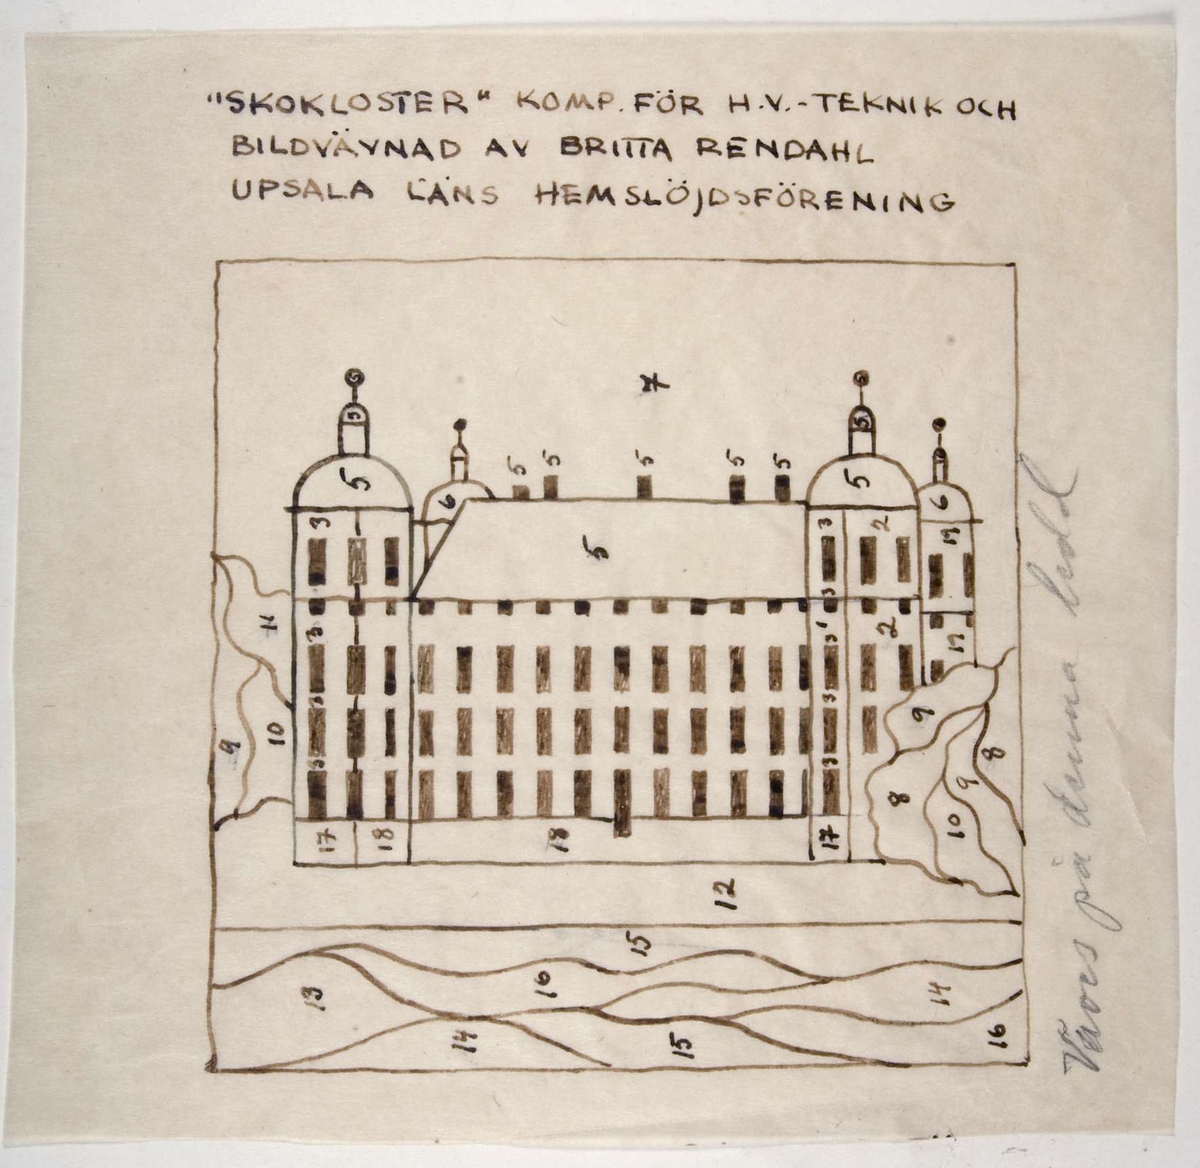 "SKOKLOSTER" KOMP. FÖR H.V.-TEKNIK OCH
BILDVÄVNAD AV BRITTA RENDAHL
UPSALA LÄNS HEMSLÖJDSFÖRENING
7
5 5
5 5 5 5 5
5 6 5 5 6
3 3 2 19
5
11 3 3 3 1 2 19
3 3
9 10 9 8
3 3 8 9
17 18 18 17 10
12
15
13 16 14
14 15 16
Väves på denna ledd